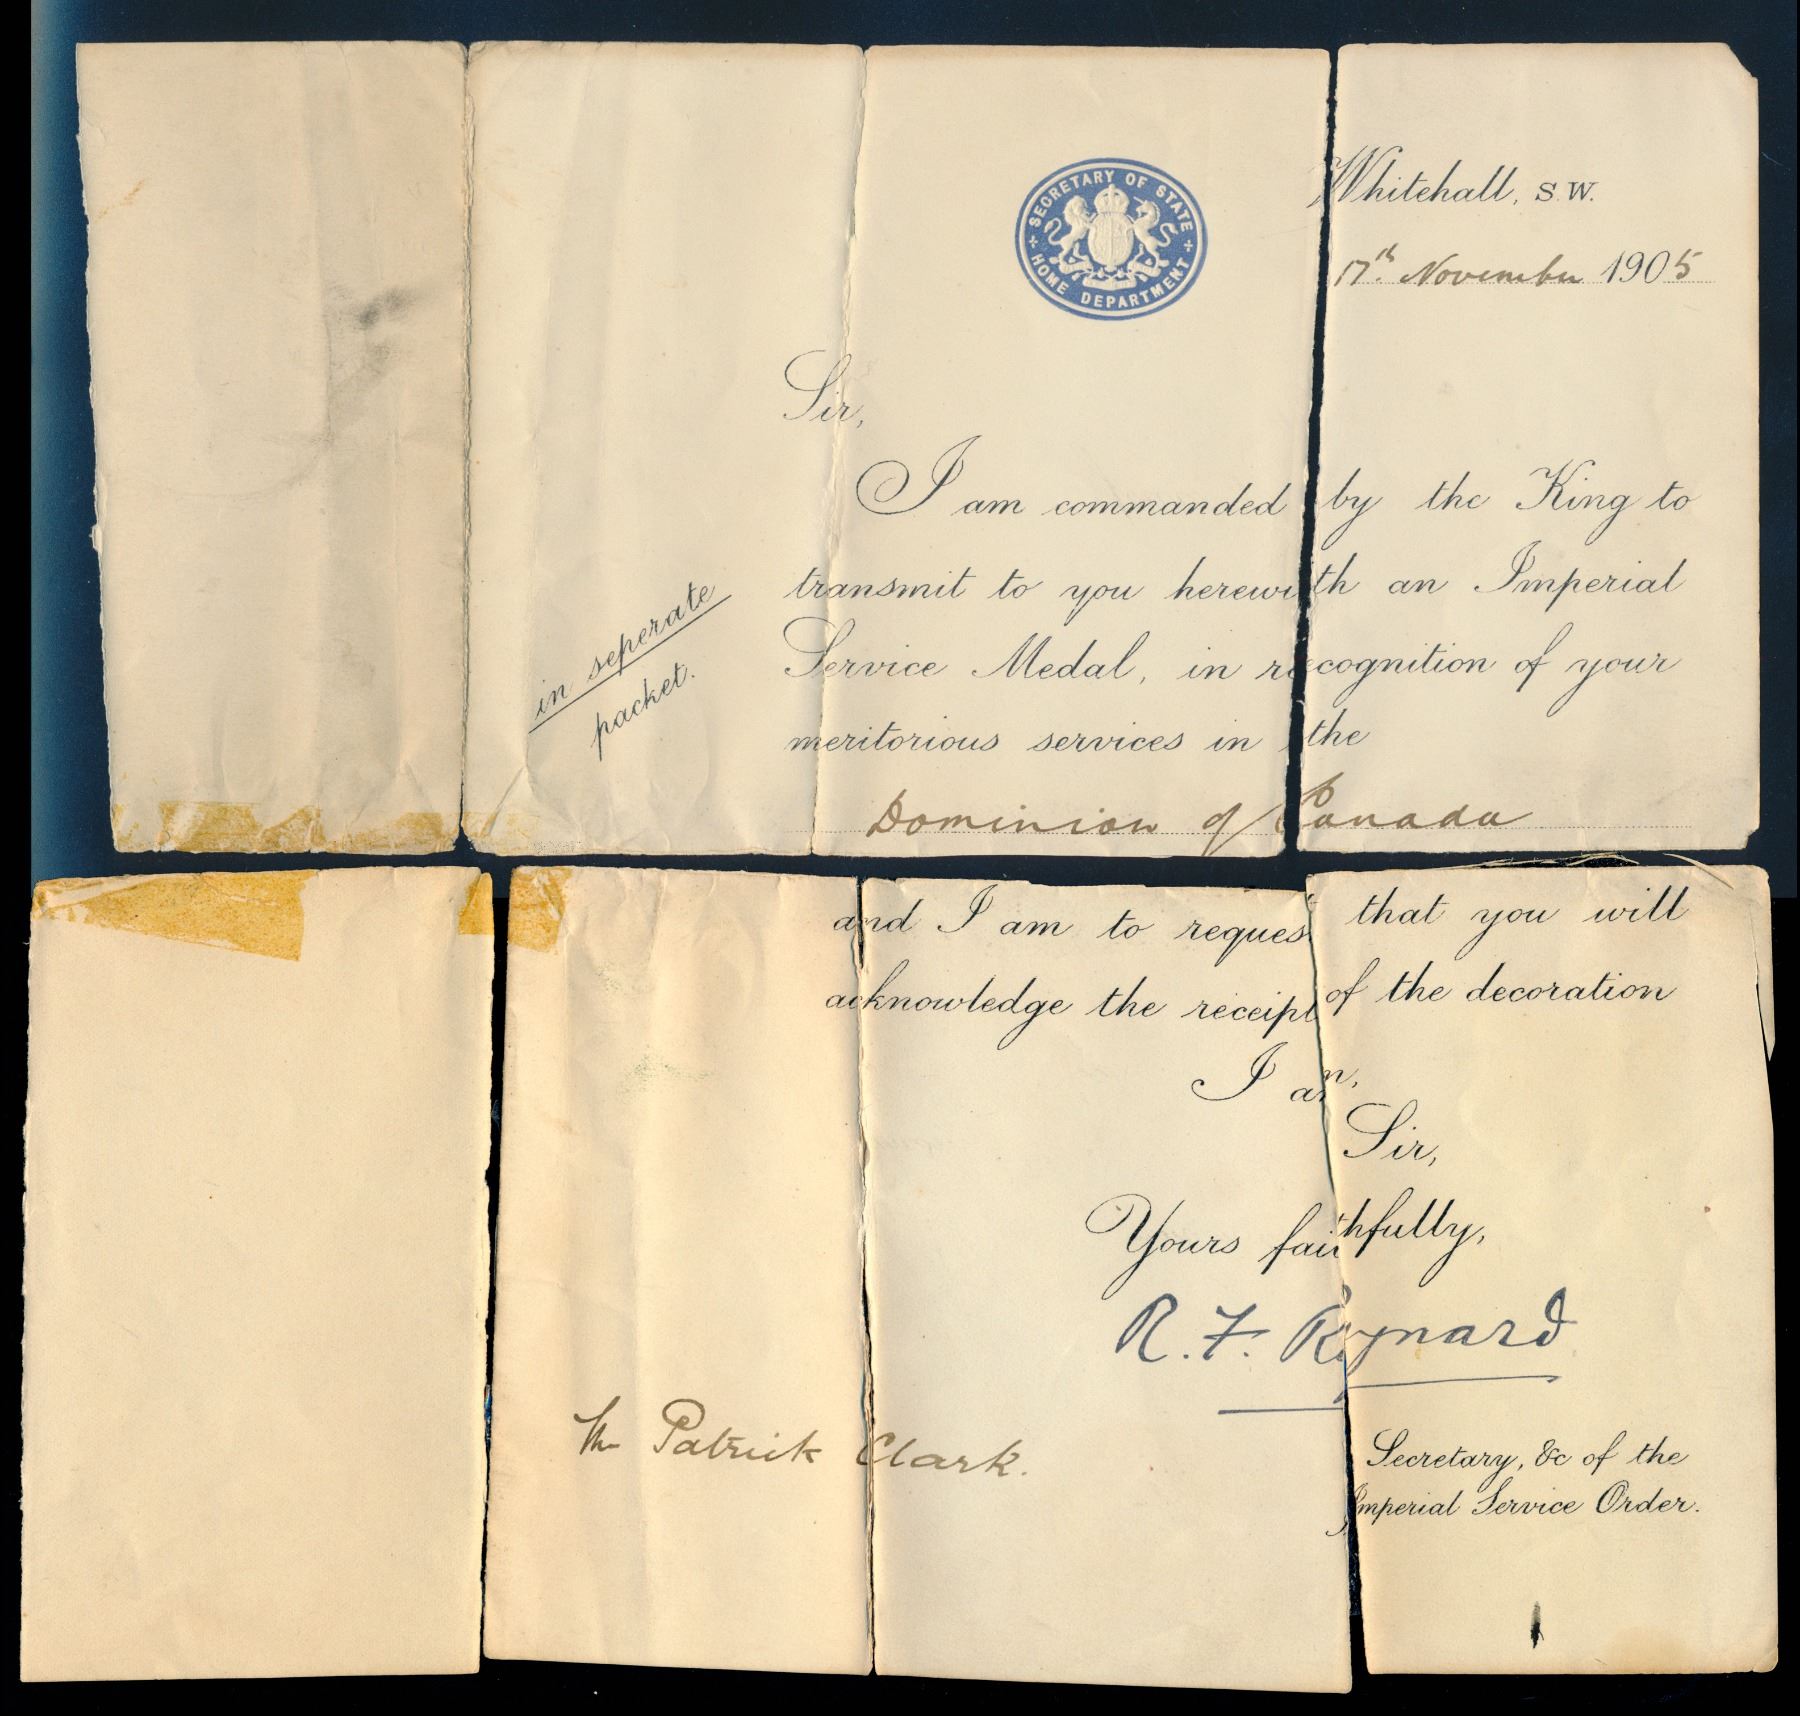 SECRETARY OF STATE
HOME DEPARTMENT
Whitehall, S.W.
17th November 1905
Sir,
I am commanded by the King to
transmit to you herewith an Imperial
Service Medal, in recognition of your
meritorious services in the
in seperate
packet.
Dominion of Canada
and I am to reques that you will
acknowledge the receipt of the decoration
I am,
Sir,
Yours faithfully,
R. F. Reynard
Mr Patrick Clark.
Secretary, &c of the
Imperial Service Order.